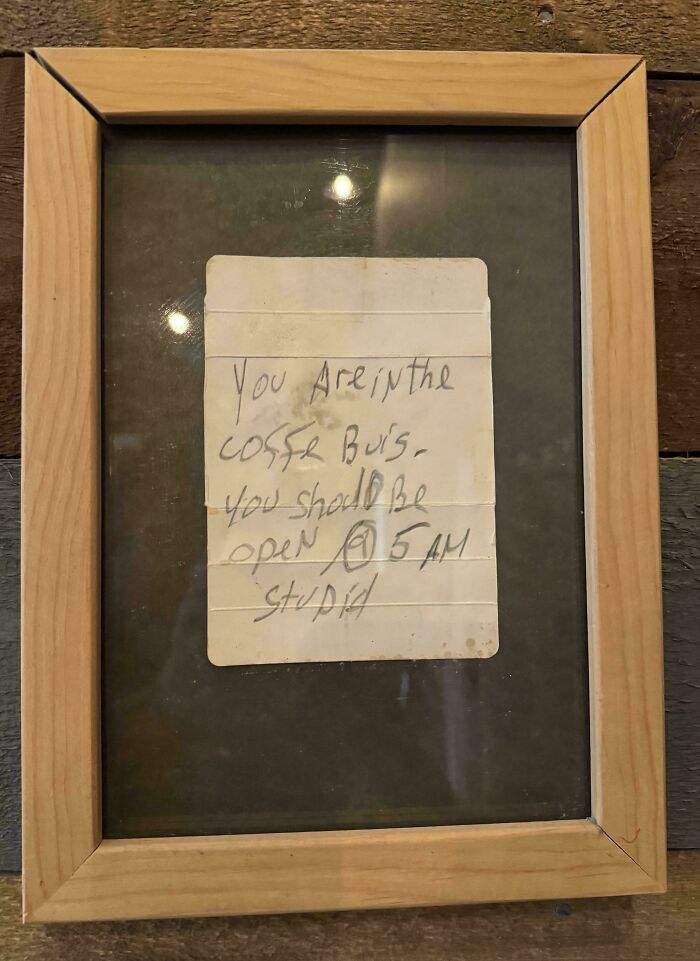 You Are in the
coffe Buis.
you should Be
open @ 5 AM
stupid